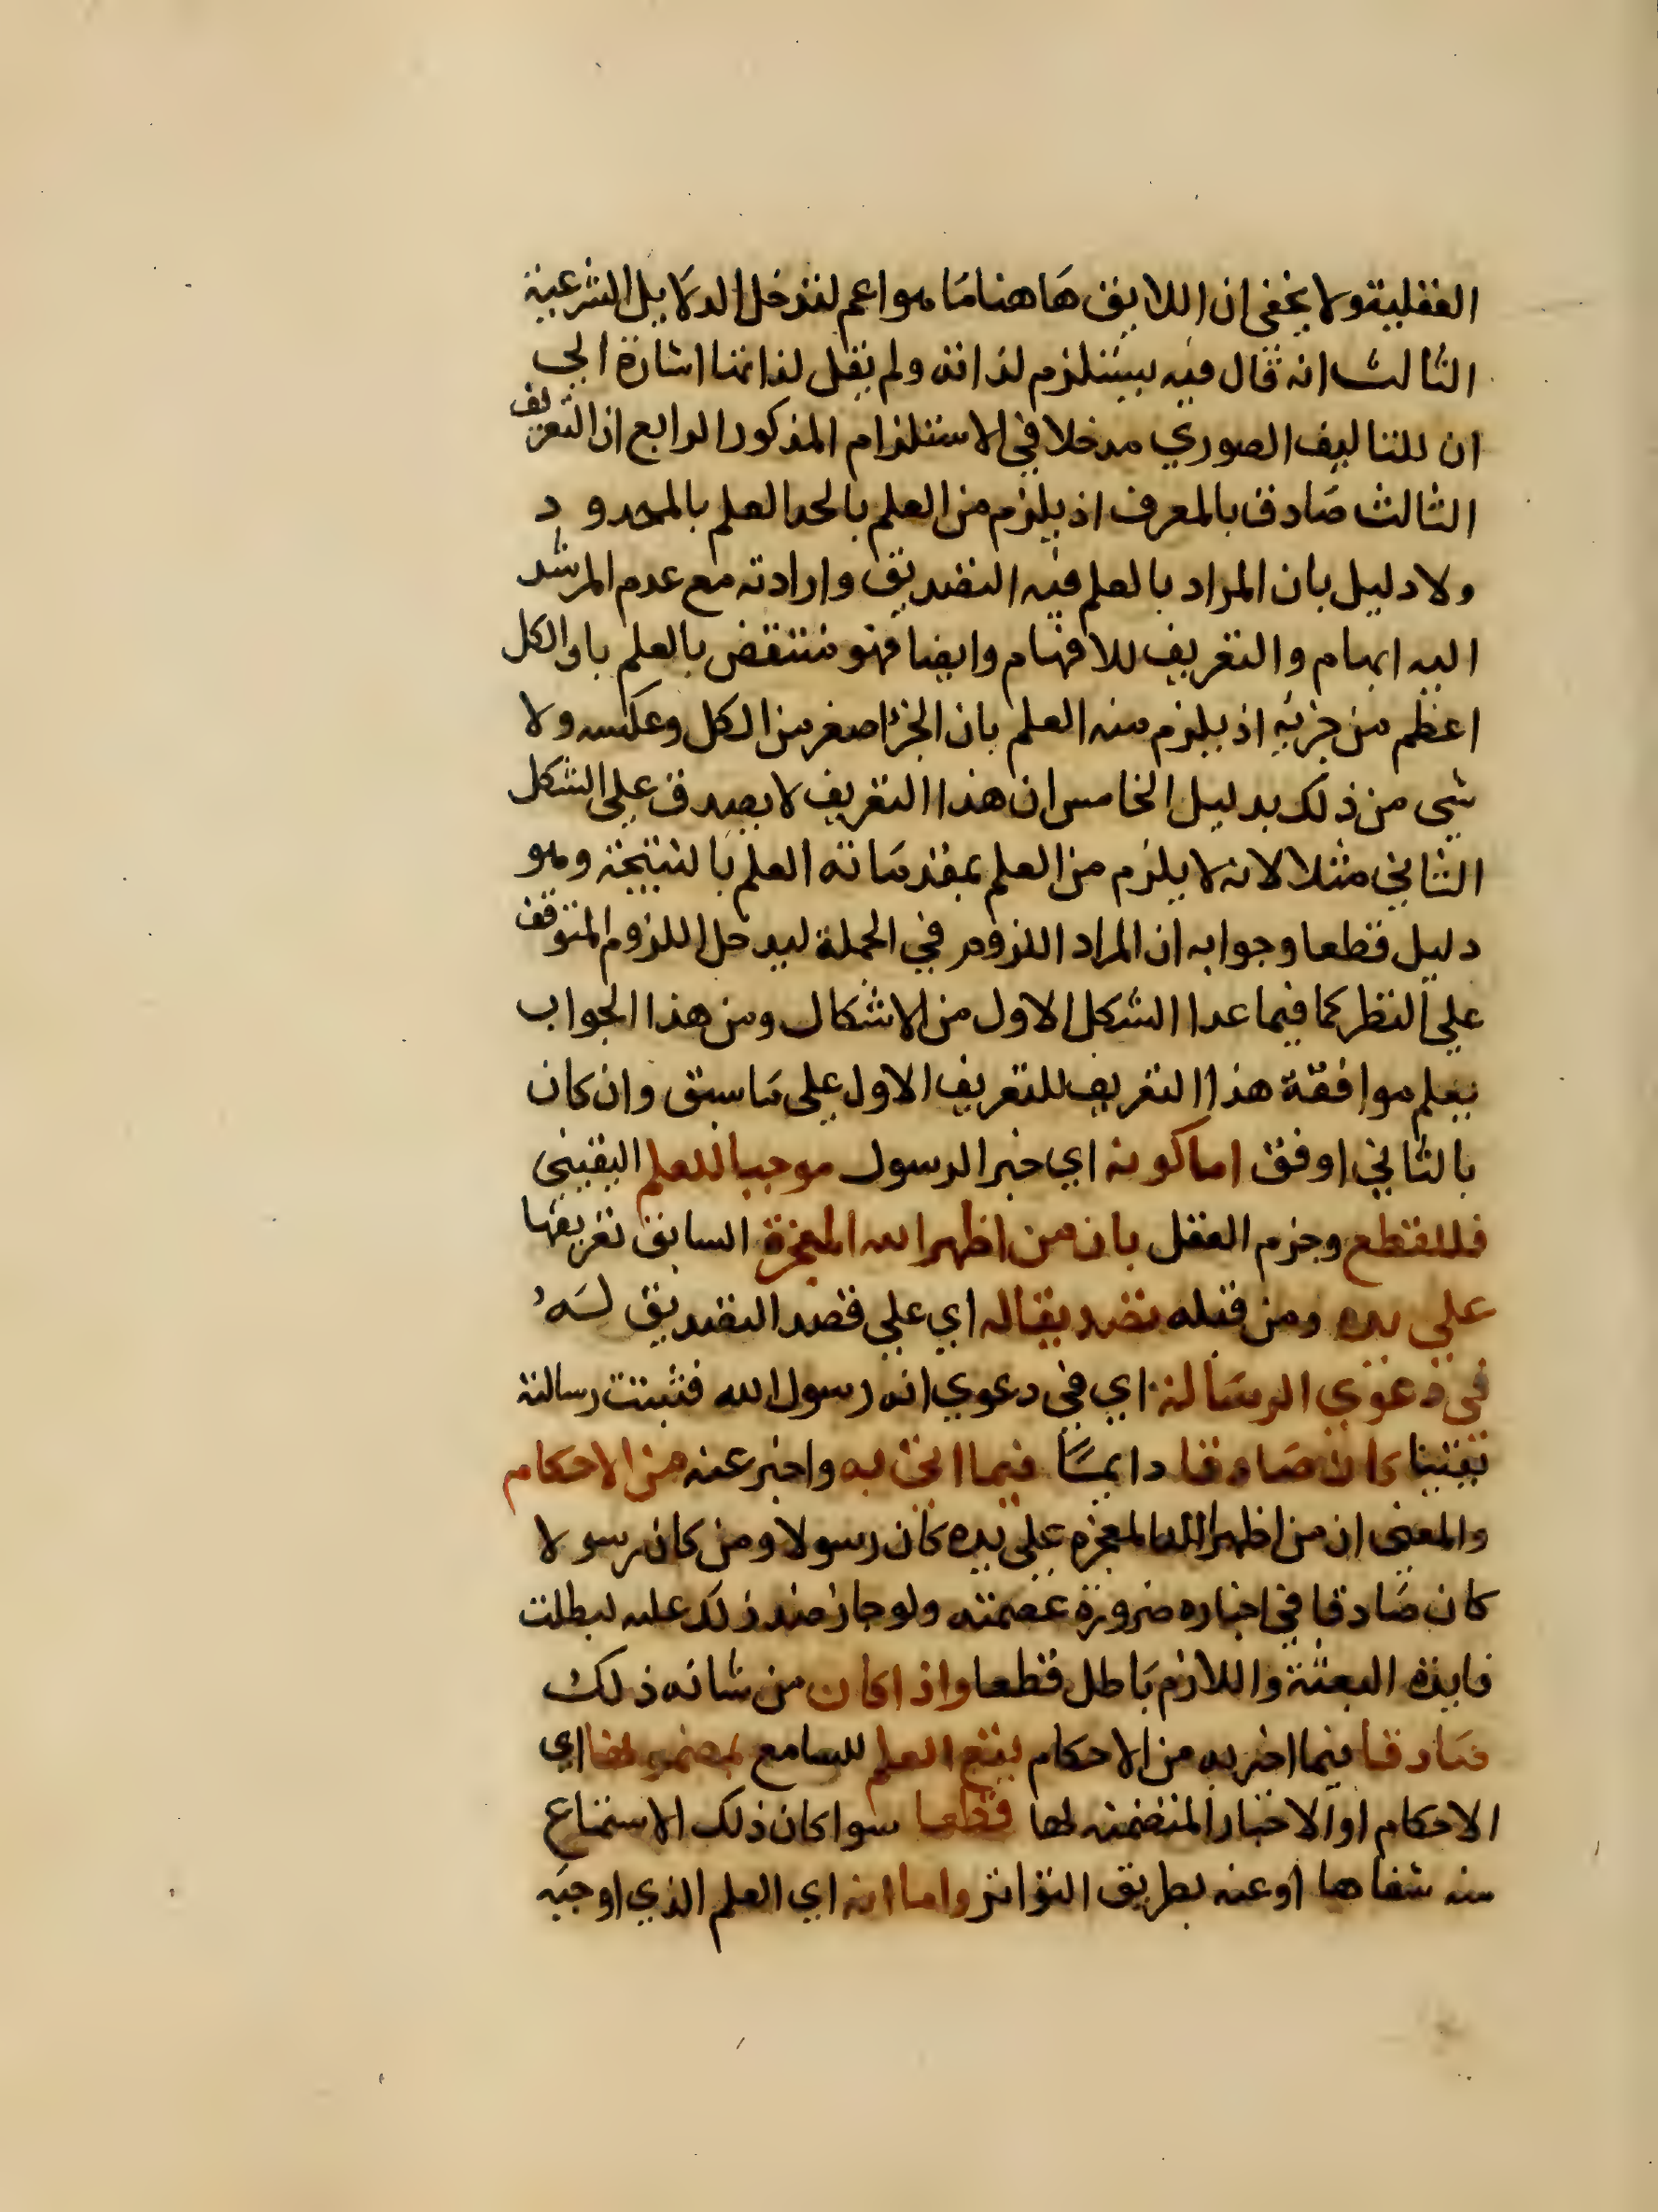 العقلية ولا يخفى ان اللايق هاهنا ما هو اعم لتدخل الدلايل الشرعية
الثالث انه قال فيه يستلزم لذاته ولم يقل لذاتها اشارة الي
ان للتاليف الصوري مدخلا في الاستلزام المذكور الرابع ان التعريف
الثالث صادق بالمعرف اذ يلزم من العلم بالحد العلم بالمحدود
ولا دليل بان المراد بالعلم فيه التصديق وارادته مع عدم المرشد
اليه ابهام والتعريف للافهام وايضا فهو منتقض بالعلم بان الكل
اعظم من جزئه اذ يلزم منه العلم بان الجزء اصغر من الكل وعكسه ولا
شي من ذلك بدليل الخامس ان هذا التعريف لا يصدق علي الشكل
الثاني مثلا لانه لا يلزم من العلم بمقدماته العلم بالنتيجة وهو
دليل قطعا وجوابه ان المراد اللزوم في الجملة ليدخل اللزوم المتوقف
علي النظر كما فيما عدا الشكل الاول من الاشكال ومن هذا الجواب
يعلم موافقة هذا التعريف للتعريف الاول علي ما سبق وان كان
بالثاني اوفق اما كونه اي خبر الرسول موجبا للعلم اليقيني
فللقطع وجزم العقل بان من اظهر الله المعجزة السابق تعريفها
علي يده ومن قبله تصديقا له اي علي قصد التصديق له
في دعوي الرسالة اي في دعوي انه رسول الله فثبتت رسالته
يقينا كان صادقا دايما فيما اتى به واخبر عنه من الاحكام
والمعني ان من اظهر الله المعجزه علي يده كان رسولا ومن كان رسولا
كان صادقا في اخباره ضرورة عصمته ولو جاز ضد ذلك عليه لبطلت
فايدة البعثة واللازم باطل قطعا واذا كان من شانه ذلك
صادقا فيما اخبر به من الاحكام يقع العلم للسامع بمضمونها اي
الاحكام او الاخبار المتضمنه لها قطعا سوا كان ذلك الاستماع
منه شفاها او عنه بطريق التواتر واما انه اي العلم الذي اوجبه